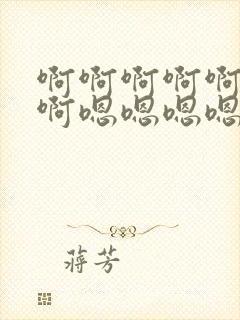 啊啊啊啊啊
啊嗯嗯嗯嗯
蒋芳